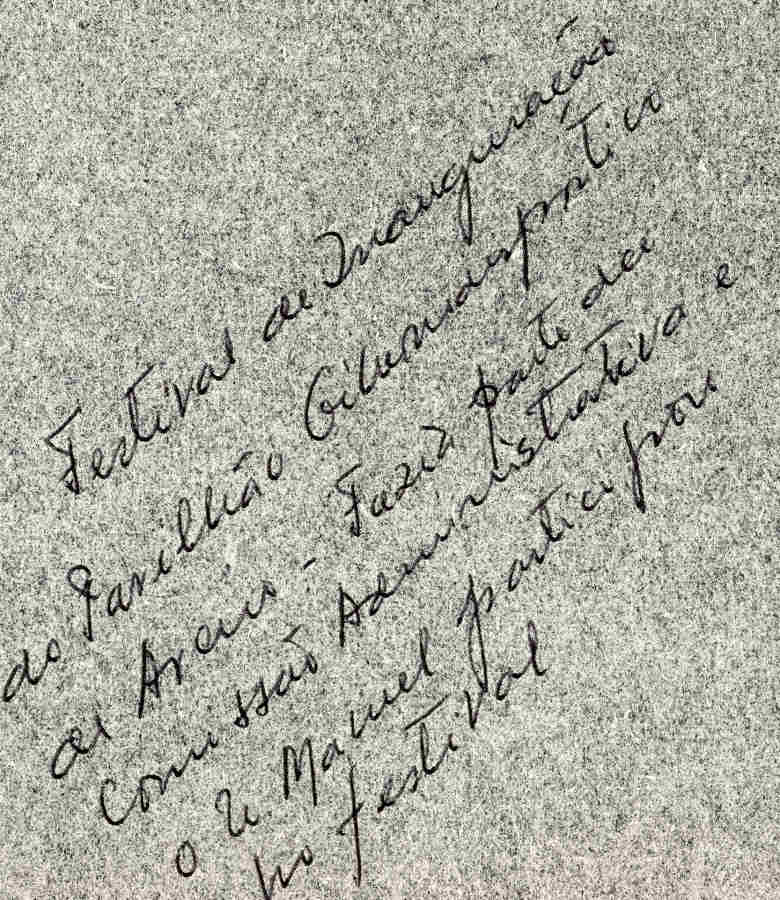 Festival de Inauguração
do Pavilhão Gimnodesportivo
de Aveiro - Fazia parte da
Comissão Administrativa e
o Manuel participou
no festival